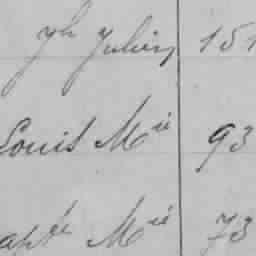 ph Julien 151
Louis Mie 93
apte Mie 73